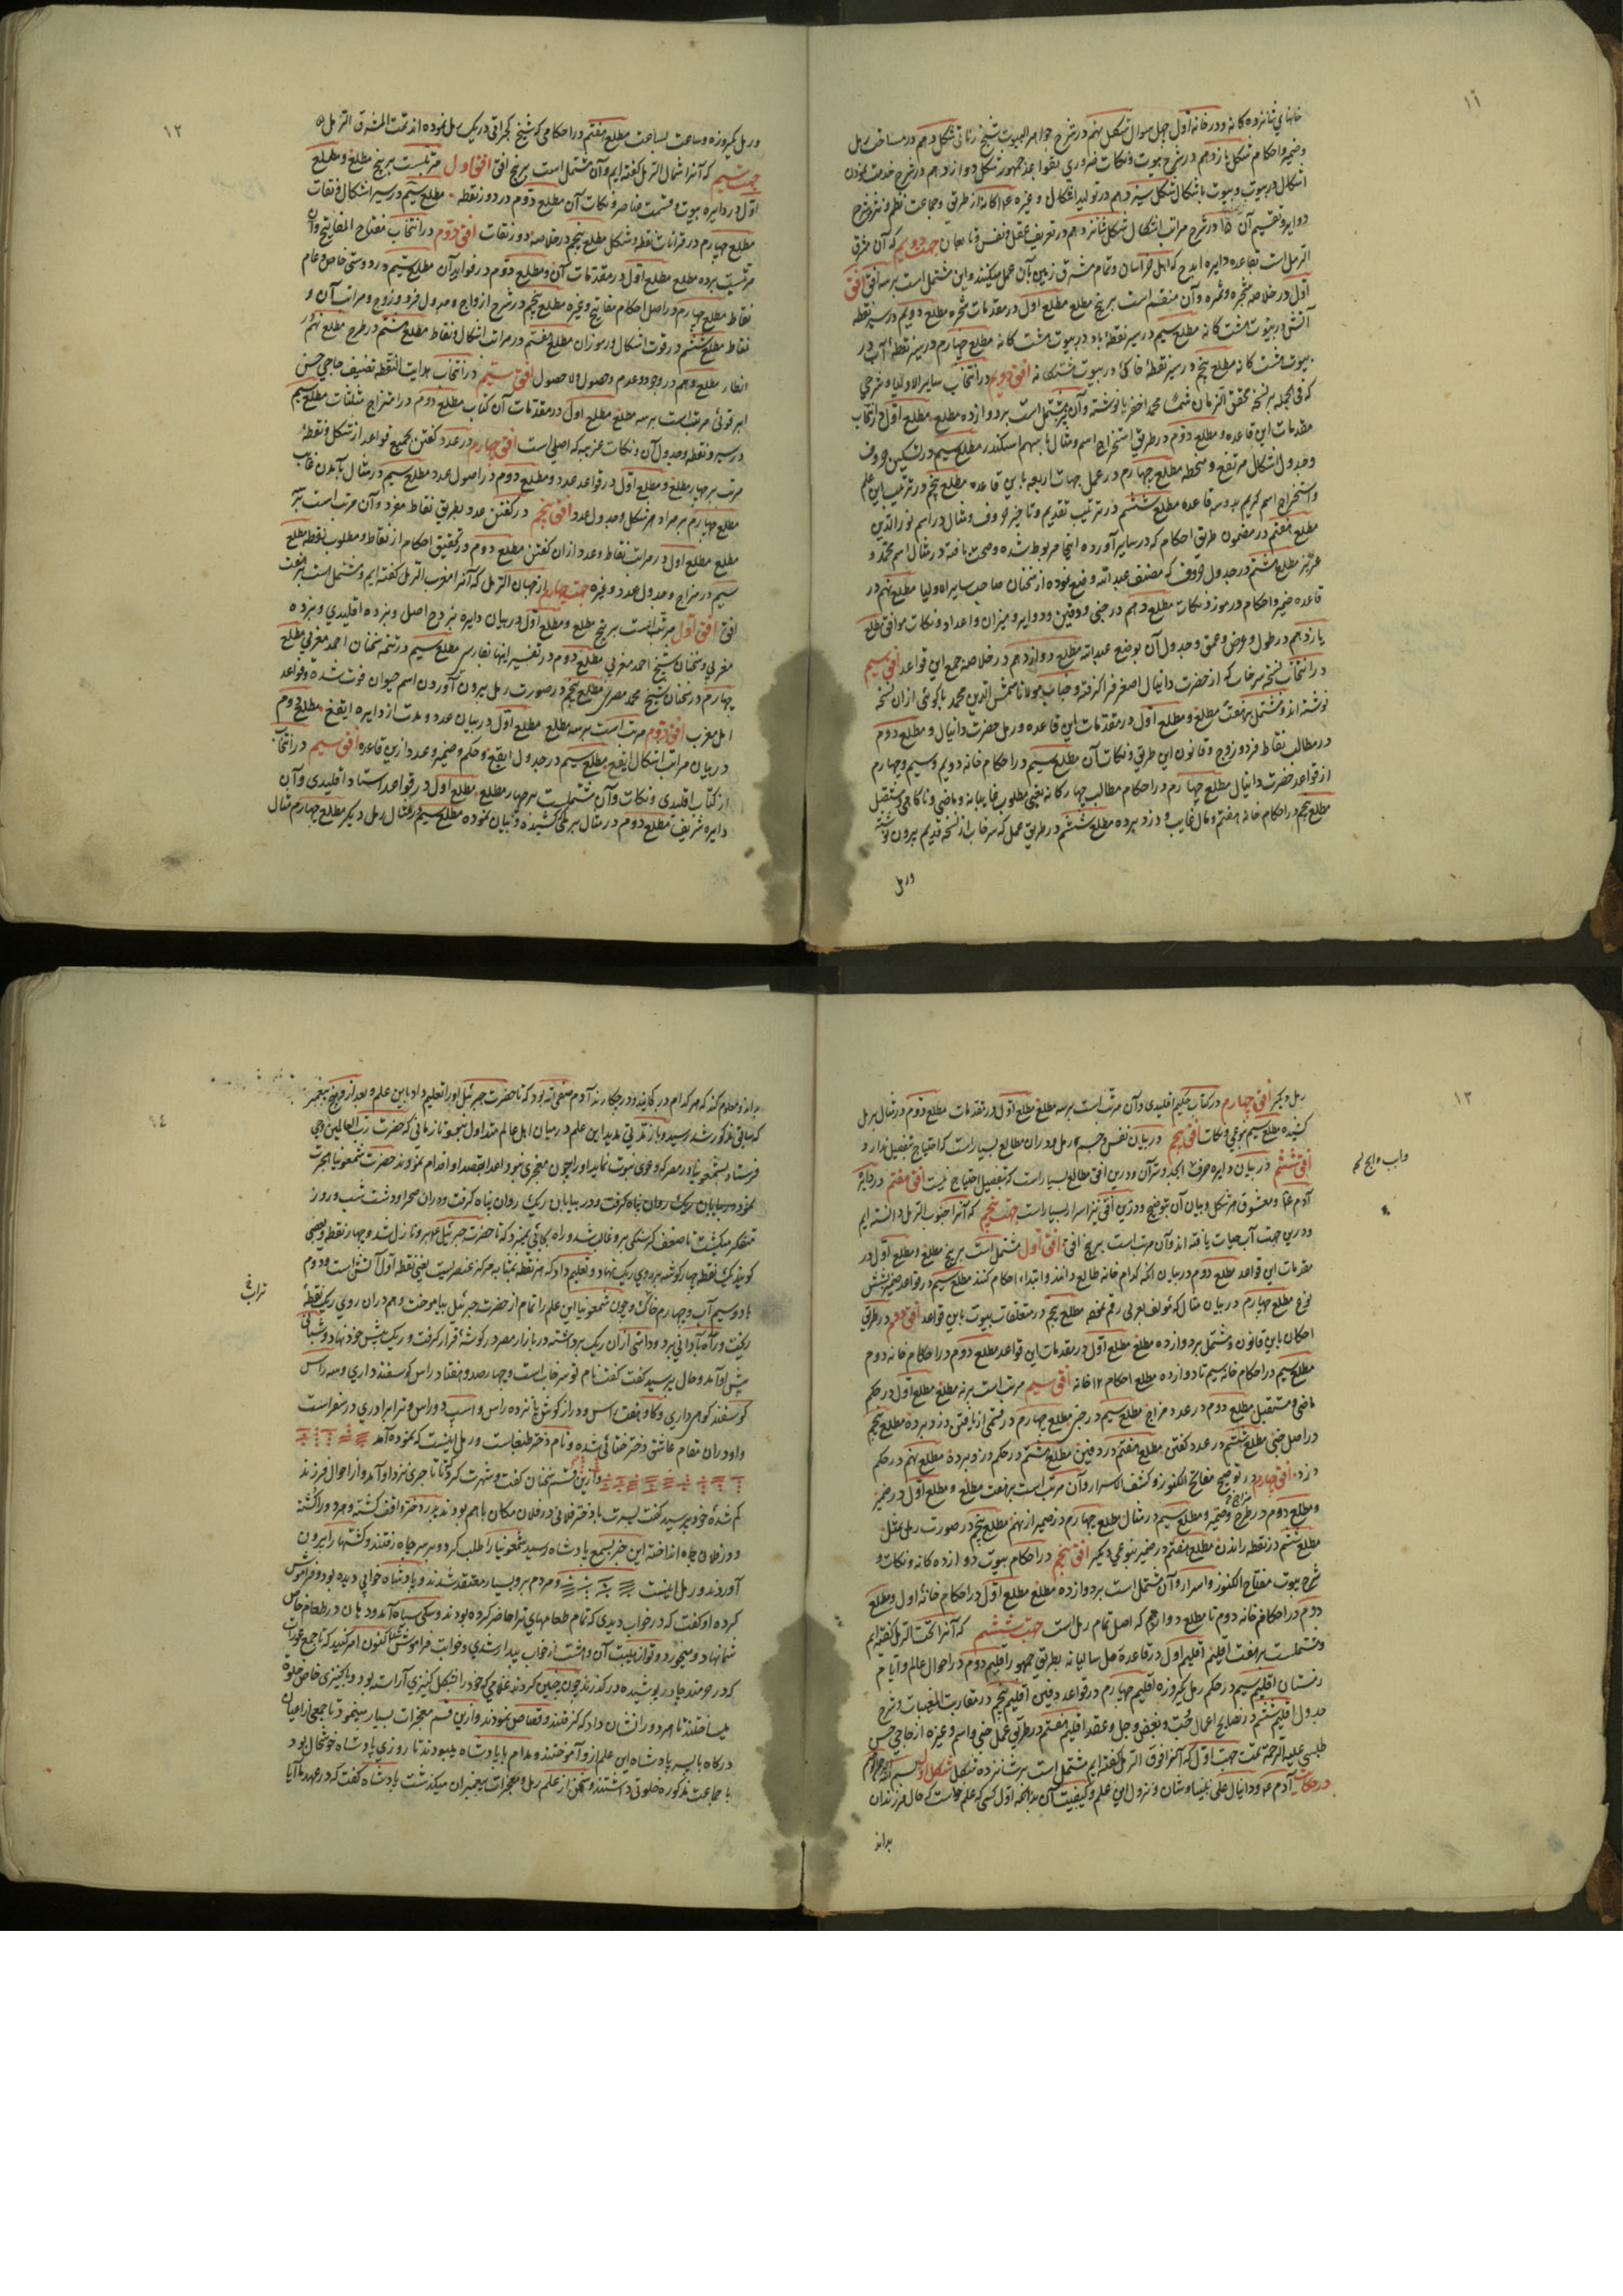 ۱۱
خانهای شانزده کانه و در خانه اول چهل سوال شکل نهم در شرح جواهر البیوت شیخ زناتی شکل دهم در مساحت رمل
وضمیر واحکام شکل یازدهم در شرح بیوت ونکات ضروری بقواعد جمهور شکل دوازدهم در شرح
اشکال در بیوت و بیوت با شکال شکل سیزدهم در تولید اشکال وغیره از طریق وجماعت نظم ونثر وشرح
دوایر وتقسیم آن ۱۵ در شرح مراتب اشکال شکل شانزدهم در تعریف عقل ونفس جهت دویم که آن شرق
الرمل است بقاعده دایره ابدح که اهل خراسان وتمام مشرق زمین بآن عمل میکنند واین مشتمل است بر سه افق افق
اول در خلاصه شجره وثمره وآن منقسم است بر پنج مطلع مطلع اول در مقدمات شجره مطلع دویم در سیر نقطه
آتش در بیوت هشت کانه مطلع سیم در سیر نقطه باد در بیوت هشت کانه مطلع چهارم در سیر نقطه آب در
بیوت هشت کانه مطلع پنجم در سیر نقطه خاکی در بیوت هشتکانه افق دویم در انتخاب سایر الاولیا
که فی الجمله بر نسخه محقق الزمان محمد اخضریا نوشته وآن مشتمل است بر دوازده مطلع مطلع اول در انتخاب
مقدمات این قاعده ومطلع دوم در طریق استخراج اسم ومثال باسم اسکندر مطلع سیم در تسکین حروف
وجدول اشکال مرتفع ومنحطه مطلع چهارم در عمل جهات اربعه باین قاعده مطلع پنجم در ترتیب این علم
واستخراج اسم کریم بدو سه قاعده مطلع ششم در ترتیب تقدیم وتاخیر حروف ومثال در اسم نور الدین
مطلع هفتم در مضمون طریق احکام که در سایر آورده اینجا مربوط شده وصحت یافته ودر مثال اسم محمد و
عزیز مطلع هشتم در جدول حروف که مصنف عبد الله وضع نموده از سخنان صاحب سایر الاولیا مطلع نهم در
قاعده ضمیر واحکام ورموز ونکات مطلع دهم در خبی ودفین ودوایر ومیزان واعداد ونکات موافق مطلع
یازدهم در طول وعرض وعمق وجدول آن بوضع عبد الله مطلع دوازدهم در خلاصه جمع این قواعد افق سیم
در انتخاب نسخه سرخاب که از حضرت دانیال اصغر فرا کرفته وجناب مولانا شمس الدین محمد باکوئی از آن نسخه
نوشته اند ومشتمل بر هفت مطلع ومطلع اول در مقدمات این قاعده ورمل حضرت دانیال ومطلع دوم
در مطالب نقاط فرد وزوج وقانون این طریق ونکات آن مطلع سیم در احکام خانه دویم وسیم وچهارم
از قواعد حضرت دانیال مطلع چهارم در احکام مطالب چهارکانه یعنی مطلوب غایبانه وماضی ومستقبل
مطلع پنجم در احکام خانه هفتم ومال غایب ودزد برده مطلع ششم در طریق عمل که سرخاب از نسخه قدیم بیرون نوشته
ورمل
۱۲
ورمل کیروزه وساعت بساعت مطلع هفتم در احکامی که شیخ کجراتی در یک رمل نموده اند تمت المشرق الرمل
جهت سیم که آنرا شمال الرمل کفته ایم وآن مشتمل است بر پنج افق افق اول مرتبست بر پنج مطلع ومطلع
اول در دایره بیوت وقسمت عناصر ونکات آن مطلع دوم در دور نقطه مطلع سیم در سیر اشکال
مطلع چهارم در قرانات نقطه وشکل مطلع پنجم در خلاصه دور نقات افق دوم در انتخاب مفتاح المفاتیح وآن
مرتبست بر ده مطلع مطلع اول در مقدمات آن ومطلع دوم در فواید آن مطلع سیم در دوستی خاص وعام
نقاط مطلع چهارم در اصل احکام مفاتیح وغیره مطلع پنجم در شرح ازواج وجدول فرد وزوج ومراتب آن و
نقاط مطلع ششم در قوت اشکال ورموز آن مطلع هفتم در مراتب اشکال ونقاط مطلع هشتم در طرح مطلع نهم در
انظار مطلع دهم در وجود وعدم وصول ولا حصول افق سیم در انتخاب هدایت النقطه تصنیف حاجی حسن
ابرقوئی مرتبست بر سه مطلع مطلع اول در مقدمات آن کتاب مطلع دوم در امتزاج مثلثات مطلع سیم
در سیر ونقطه وجدول آن ونکات غریبه که اصلی است افق چهارم در عدد کفتن بجمیع قواعد از شکل ونقطه
مرتب بر چهار مطلع ومطلع اول در قواعد عدد ومطلع دوم در اصول عدد مطلع سیم در مثال بآمدن غایب
مطلع چهارم بر مراد هر شکل وجدول عدد افق پنجم در کفتن عدد بطریق نقاط مفرد وآن مرتب است بر سه
مطلع مطلع اول در مراتب نقاط وعدد ازان کفتن مطلع دوم در تحقیق احکام از نقاط ومطلوب نقطه مطلع
سیم در مزاج وجدول عدد وغیره جهت چهارم از جهان الرمل که آنرا مغرب الرمل کفته ایم ومشتمل است بر هفت
افق افق اول مرتبست بر پنج مطلع ومطلع اول در بیان دایره بزدح اصل وبزده اقلیدی وبزده
مغربی وسخنان شیخ احمد مغربی مطلع دوم در تفسیر اینها بفارسی مطلع سیم در تتمه سخنان احمد مغربی مطلع
چهارم در سخنان شیخ محمد مصری مطلع پنجم در صورت رمل بیرون آوردن اسم حیوان فوت شده وقواعد
اهل مغرب افق دوم مرتب است بر سه مطلع مطلع اول در بیان عدد ومدت از دایره ایقغ مطلع دوم
در بیان مراتب اشکال ایقغ مطلع سیم در جدول ایقغ وحکم وضمیر وعدد ازین قاعده افق سیم در انتخاب
از کتاب اقلیدی ونکات وآن مشتملست بر چهار مطلع مطلع اول در قواعد استاد اقلیدی وآن
دایره شریف مطلع دوم در مثال بر رملی کشیده وبیان نموده مطلع سیم در مثال رمل دیکر مطلع چهارم مثال
۱۳
رمل دیکر افق چهارم در کتاب حکیم اقلیدی وآن مرتب است بر سه مطلع مطلع اول در مقدمات مطلع دوم در مثال بر رمل
کشیده مطلع سیم نوعی ونکات افق پنجم در بیان نفس وجسم رمل ودر آن مطالع بسیار است که احتیاج تفصیل ندارد
افق ششم در بیان دایره حرف ابجد وقرآن ودرین افق مطالع بسیار است که بتفصیل احتیاج نیست افق هفتم در دایره
آدم ع ومعشوق هر شکل وبیان آن بتوضیح ودرین افق نیز اسرار بسیار است جهت پنجم که آنرا جنوب الرمل دانسته ایم
ودرین جهت آب حیات یافته اند وآن مرتب است بر پنج افق افق اول مشتمل است بر پنج مطلع ومطلع اول در
مقدمات این قواعد مطلع دوم در بیان آنکه کدام خانه طالع دانند وابتداء احکام کنند مطلع سیم در قواعد ضمیر بشش
نوع مطلع چهارم در بیان مثال که مؤلف لعربی رقم نموده مطلع پنجم در متعلقات بیوت باین قواعد افق دوم در طریق
احکام باین قانون ومشتمل بر دوازده مطلع مطلع اول در مقدمات این قواعد مطلع دوم در احکام خانه دوم
مطلع سیم در احکام خانه سیم تا دوازده مطلع احکام ۱۲ خانه افق سیم مرتب است بر نه مطلع مطلع اول در حکم
ماضی ومستقبل مطلع دوم در عدد ومزاج مطلع سیم در خبی مطلع چهارم در قسمی از یافتن دزد وبرده مطلع پنجم
در اصل خبی مطلع ششم در عدد کفتن مطلع هفتم در دفین مطلع هشتم در حکم دزد وبرده مطلع نهم در حکم
دزد افق چهارم در توضیح مفاتیح الکنوز وکشف الاسرار وآن مرتب است بر هفت مطلع ومطلع اول در ضمیر
ومطلع دوم در طرح وضمیر ومطلع سیم در مثال مطلع چهارم در ضمیر از نهم مطلع پنجم در صورت رمل بمثل
مطلع ششم در نقطه راندن مطلع هفتم در ضمیر بنوعی دیکر افق پنجم در احکام بیوت دوازده کانه ونکات و
شرح بیوت مفتاح الکنوز واسرار وآن مشتمل است بر دوازده مطلع مطلع اول در احکام خانه اول ومطلع
دوم در احکام خانه دوم تا مطلع دوازدهم که اصل تمام رمل است جهت ششم که آنرا تحت الرمل کفته ایم
ومشتملست بر هفت اقلیم اقلیم اول در قاعده رمل سالیانه بطریق جمهور اقلیم دوم در احوال عالم وایام
زمستان اقلیم سیم در حکم رمل یکروزه اقلیم چهارم در قواعد دفین اقلیم پنجم در مقاربت المغیبات وشرح
جدول اقلیم ششم در نصایح اعمال محبت وبغض وحل وعقد اقلیم هفتم در طریق عمل خبی واسم وغیره از حاجی حسن
طبسی علیه الرحمة تمت جهت اول که آنرا فوق الرمل کفته ایم مشتمل است بر شانزده شکل شکل اول
در حکایت آدم ع ودانیال علی نبینا وشان ونزول این علم وکیفیت آن بدانکه اول کسی که علم خواست که حال فرزندان
بداند
۱۴
بداند ومعلوم کند که هر کدام در کجایند ودر چه کارند آدم صفی الله بود که تا حضرت جبرئیل اورا تعلیم داد باین علم وبعد از وبهر پیغمبر
که سابق مذکور شد رسید وباز مدتی مدید این علم در میان اهل عالم متداول میبود تا زمانی که حضرت رب العالمین وحی
فرستاد بشمعونیا در مصر که دعوی نبوت نماید اورا چون معجزی نبود اعدا بقصد او اقدام نمودند حضرت شمعونیا هجرت
نمود ودر بیابان ریک روان پناه کرفت ودر آن صحرا ودشت شب وروز
متفکر میکشت تا ضعف کرسنکی برو غالب شد وراه بجائی نمیبرد که تا حضرت جبرئیل برو نازل شد وچهار نقطه وبعضی
کویند یک نقطه چهار کوشه بر روی ریک نهاد وتعلیم داد که هر نقطه بمثابه مرکز عنصریست یعنی نقطه اول آتشی است ودوم
باد وسیم آب وچهارم خاک وچون شمعونیا این علم را تمام از حضرت جبرئیل بیاموخت وهم در آن روی ریک نقطه
ریخت وراه بآبادانی برد ودامنی از آن ریک برداشته در بازار مصر در کوشه قرار کرفت وریک پیش خود نهاد وشبانی
پیش او آمد وحال پرسید کفت کفت نام تو سرخاب است وچهار صد وهفتاد راس کوسفند داری وسه راس
کوسفند کوهی داری وکاو هفت راس ودراز کوش پانزده راس واسب دو راس وترا برادری در سفر است
واو در آن مقام عاشق دختر خطائی شده ونام دختر طمغاج است ورمل اینست که نموده آمد
وازین قسم سخنان کفت وشهرت کرد تا تاجری نزد او آمد واز احوال فرزند
کم شده خود پرسید کفت پسرت با دختر فلانی در فلان مکان باهم بودند پدر دختر واقف کشته وهر دو را کشته
ودر فلان چاه انداخته این خبر بسمع پادشاه رسید شمعونیا را طلب کرد وبر سر چاه رفتند وکشتها را بیرون
آوردند ورمل اینست ومردم برو بسیار معتقد شدند وپادشاه خوابی دیده بود وفراموش
کرده او کفت که در خواب دیدی که تمام طعامهای ترا حاضر کرده بودند وسکی سیاه آمد ودهان در طعام خاص
شما نهاد ومیخورد وتو از هیبت آن وحشت از خواب بیدار شدی وخواب فراموش شد اکنون امر کنید که تا جمع عورات
که در حرمند چادر پوشیده در کذرند چون چنین کردند غلامی که خود را بشکل کنیزی آراسته بود وبا کنیزی خاص خلوة
میساختند تا هر دو را نشان داد که کرفتند وقصاص نمودند وازین قسم معجزات بسیار مینمود تا جمعی از اعیان
درکاه با پسر پادشاه این علم ازو آموختند ومدام با پادشاه میبودند تا روزی پادشاه خوشحال بود
با جماعت مذکوره خلوتی داشتند وسخن از علم رمل ومعجزات پیغمبران میکذشت پادشاه کفت که در عهد ما آیا